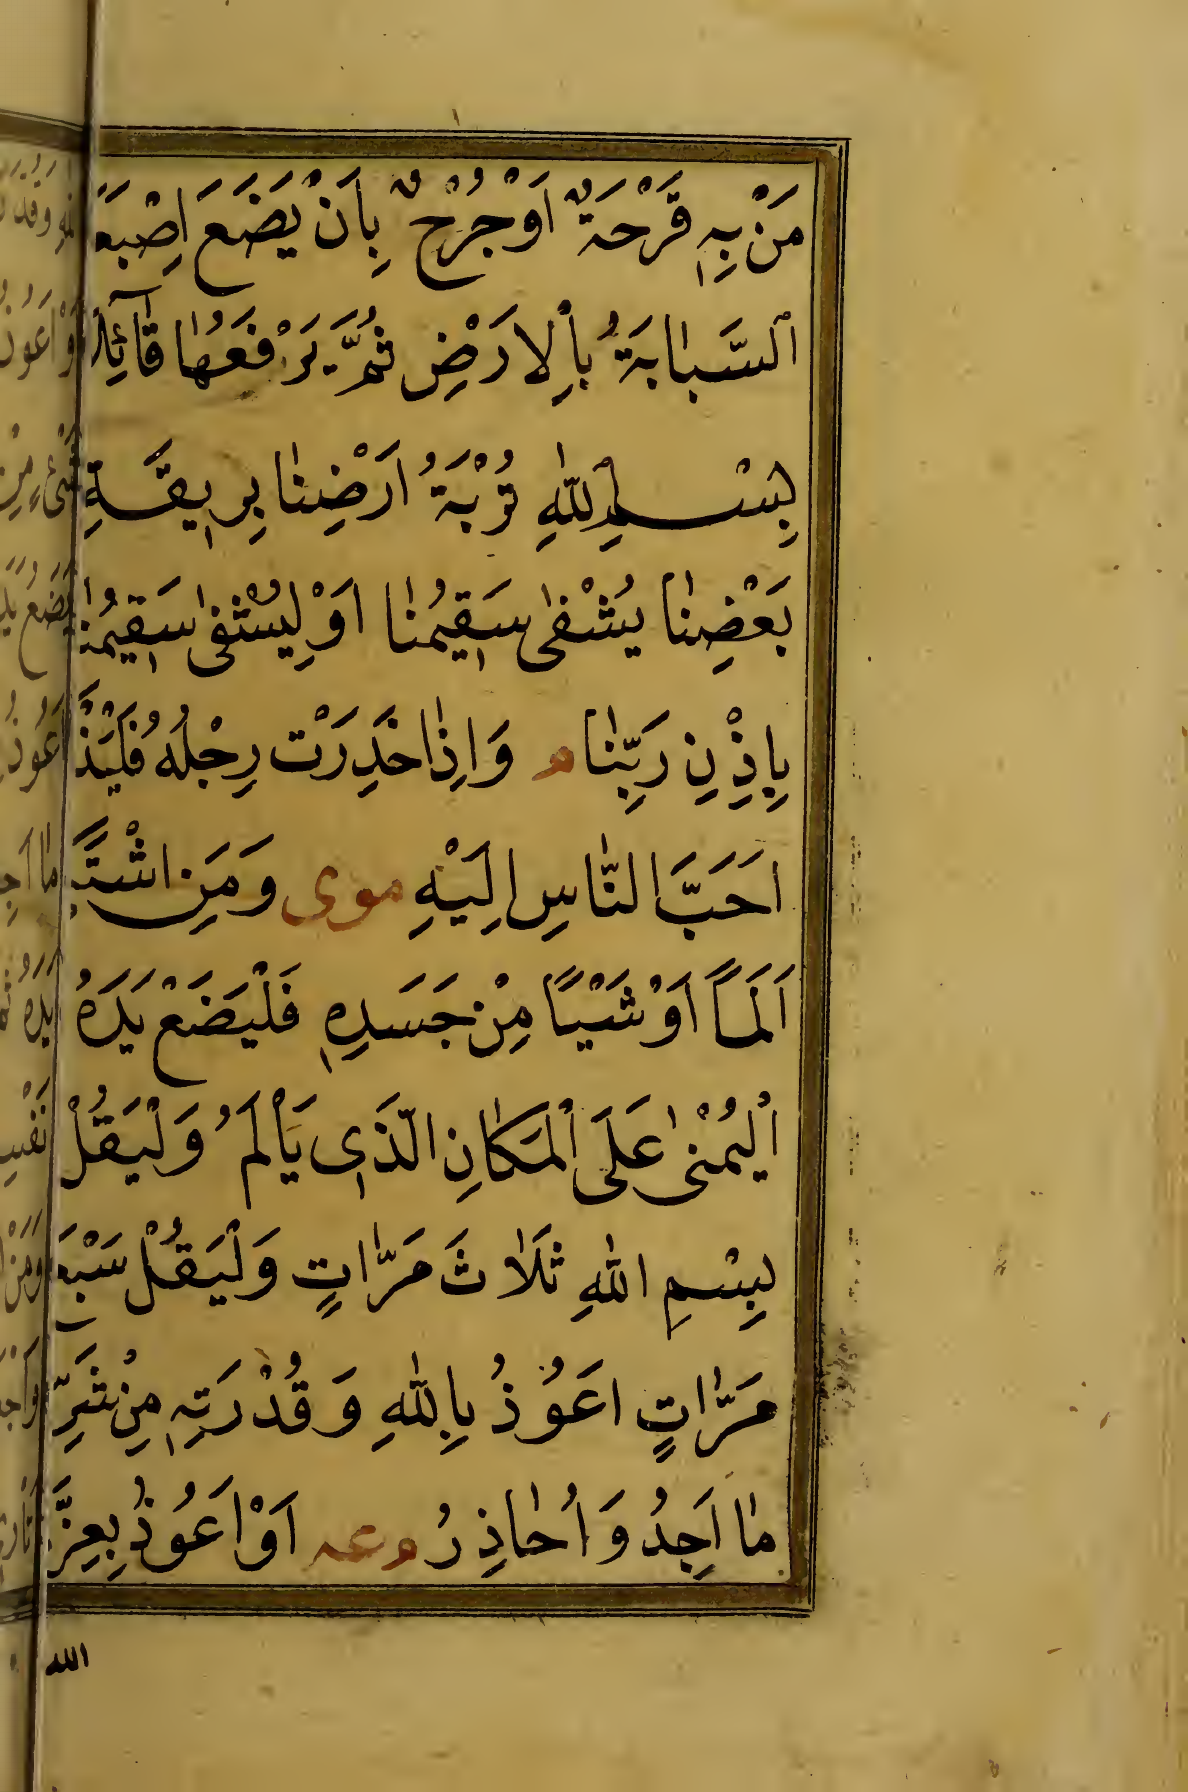 مَنْ بِهٖ قَرْحَةٌ اَوْ جُرْحٌ بِاَنْ يَضَعَ اِصْبَعَ
السَّبابَةَ بِالاَرْضِ ثُمَّ يَرْفَعُهَا قَآئِلاً
بِسْمِ اللّٰهِ تُرْبَةُ اَرْضِنٰا بِرِيقَةِ
بَعْضِنٰا يُشْفٰى سَقِيمُنٰا اَوْ لِيُشْفٰى سَقِيمُنٰا
بِاِذْنِ رَبِّنٰا م وَاِذٰا خَدِرَتْ رِجْلُهُ فَلْيَذْ
اَحَبَّ النّٰاسِ اِلَيْهِ موى وَمَنِ اشْتَ
اَلَمًا اَوْ شَيْئًا مِنْ جَسَدِهٖ فَلْيَضَعْ يَدَهُ
الْيُمْنٰى عَلَى الْمَكٰانِ الَّذٖى يَأْلَمُ وَلْيَقُلْ
بِسْمِ اللّٰهِ ثَلٰاثَ مَرّٰاتٍ وَلْيَقُلْ سَبْعَ
مَرّٰاتٍ اَعُوذُ بِاللّٰهِ وَقُدْرَتِهٖ مِنْ شَرِّ
مٰا اَجِدُ وَاُحٰاذِرُ م عه اَوْ اَعُوذُ بِعِزَّ
الله